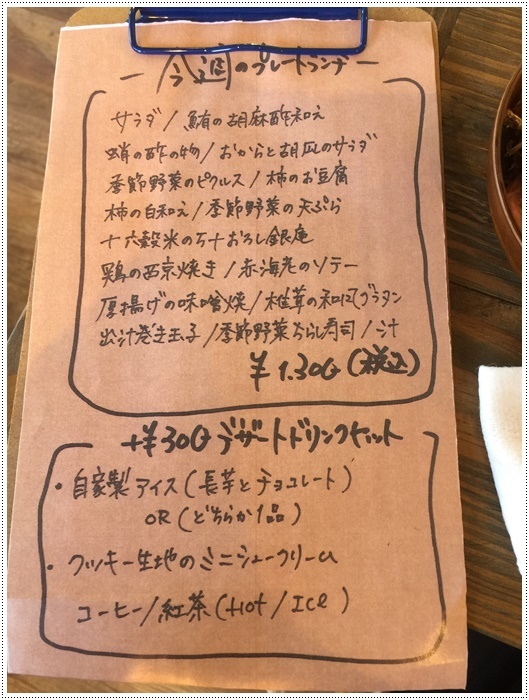 — 今週のプレートランチ —
サラダ / 鮪の胡麻酢和え
蛸の酢の物 / おからと胡瓜のサラダ
季節野菜のピクルス / 柿のお豆腐
柿の白和え / 季節野菜の天ぷら
十六穀米の おろし銀庵
鶏の西京焼き / 赤海老のソテー
厚揚げの味噌焼 / 椎茸の和風グラタン
出汁巻き玉子 / 季節野菜ちらし寿司 / 汁
¥1.300 (税込)
+¥300 デザートドリンクセット
・自家製アイス (長芋とチョコレート)
OR (どちらか1品)
・クッキー生地のミニシュークリーム
コーヒー / 紅茶 (Hot / Ice)